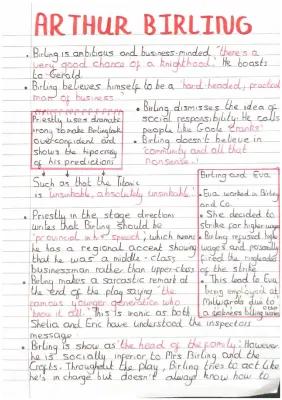 ARTHUR BIRLING
• Birling is ambitious and business-minded 'there's a
very good chance of a knighthood.' He boasts
to Gerald
• Birling believes himself to be a 'hard-headed, practical
man of business'
Priestly uses dramatic
irony to make Birling look
overconfident and
shows the hipocracy
of his predictions
• Birling dismisses the idea of
social responsibility. He calls
people like Goole 'cranks'
• Birling doesn't believe in
'community and all that
nonsense.'
Such as that the Titanic
is 'unsinkable, absolutely unsinkable'
• Priestly in the stage direction
writes that Birling should be
'provincial in his speech', which means
he has a regional accent showing
that he was a middle-class
businessman rather than upper-class
• Birling makes a sarcastic remark at
the end of the play saying 'the
famous younger generation who
know it all.' This is ironic as both
Shelia and Eric have understood the inspectors
message
Birling and Eva
• Eva worked in Birling
and Co.
• She decided to
strike for higher wages
• Birling refused high
wages and
fired the ringleaders
of the strike
• This lead to Eva
being employed at
Millwards due to
• Birling is show as 'the head of the family'. However
he is socially inferior to Mrs Birling and the
Crofts. Throughout the play, Birling tries to act like
he's in charge but doesn't always know how to